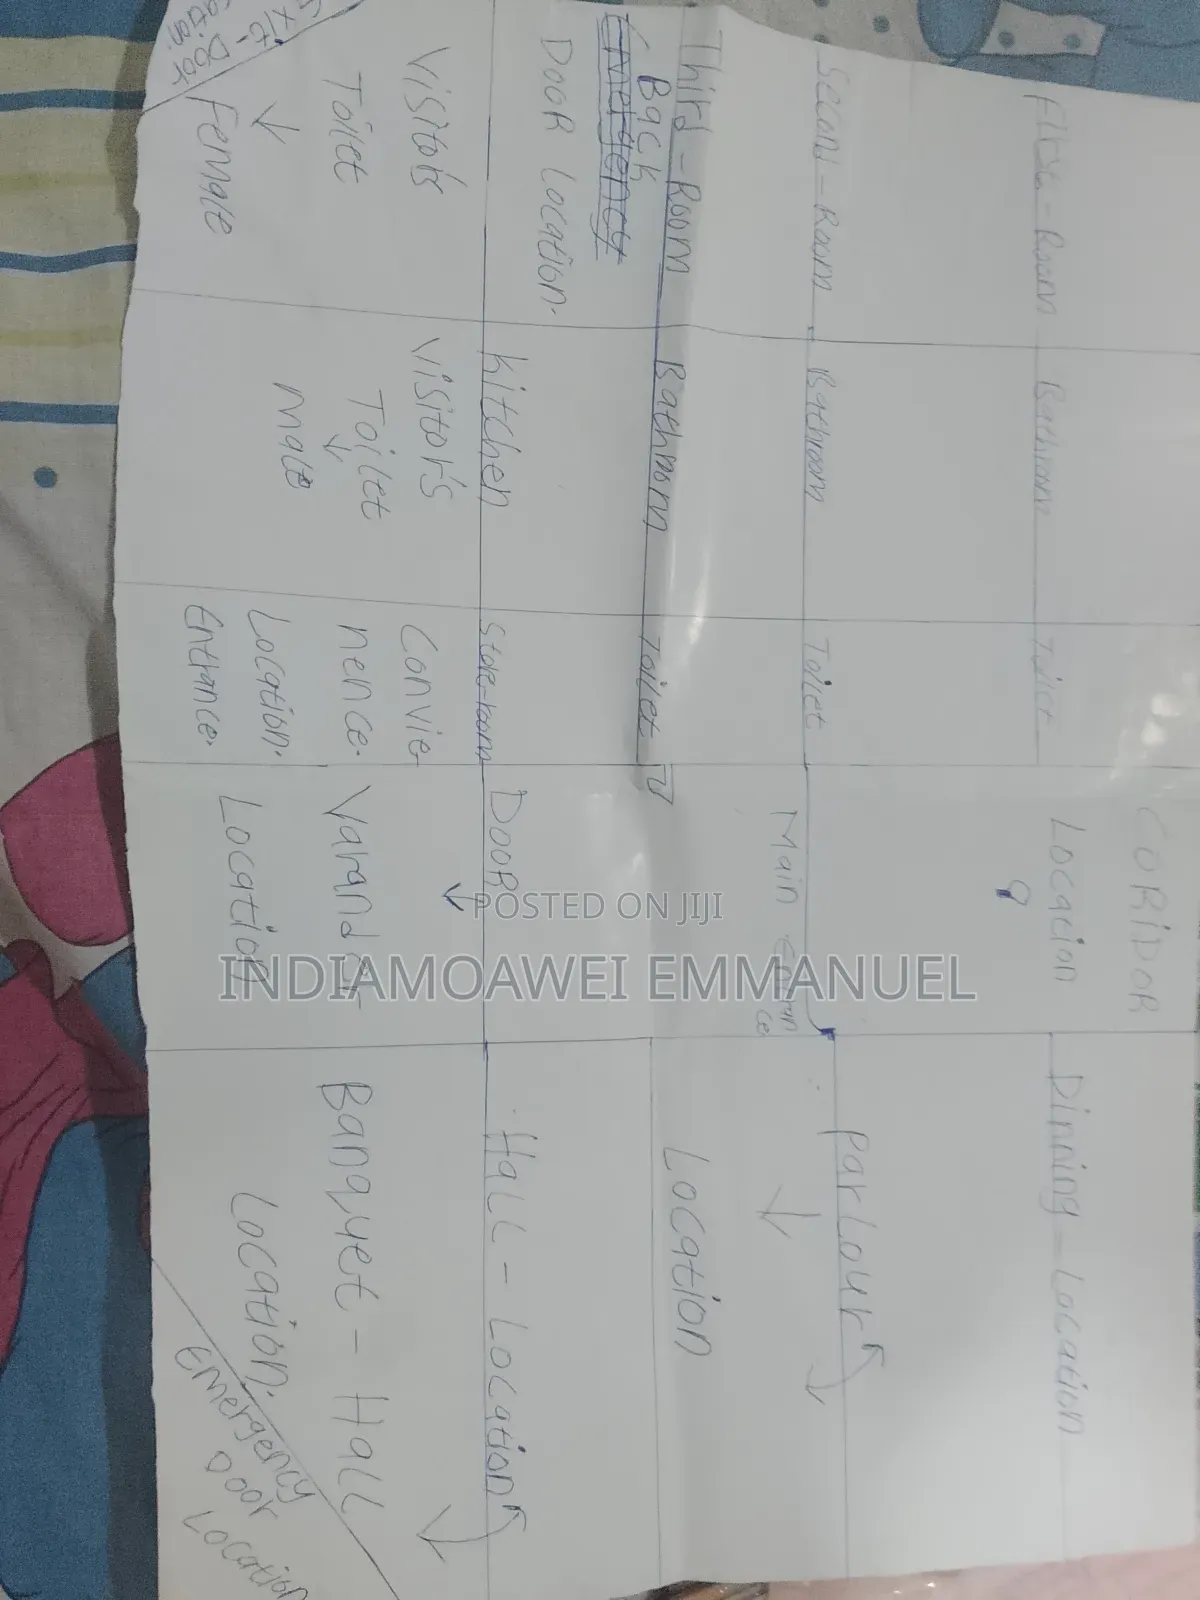 CORIDOR
First-Room Bathroom Toilet Location Dinning-Location
Second-Room Bathroom Toilet
Main Entran
ce
Parlour
Third-Room Bathroom Toilet
Location
Back
Emergency
Door Location.
Kitchen Store-Room Door Hall-Location
Visitor's
Toilet
Female
Visitor's
Toilet
Male
Convie
nence.
Location.
Entrance.
Varandar-
Location
Banquet-Hall
Location.
Exit
Door
Emergency
Door
Location
POSTED ON JIJI
INDIAMOAWEI EMMANUEL